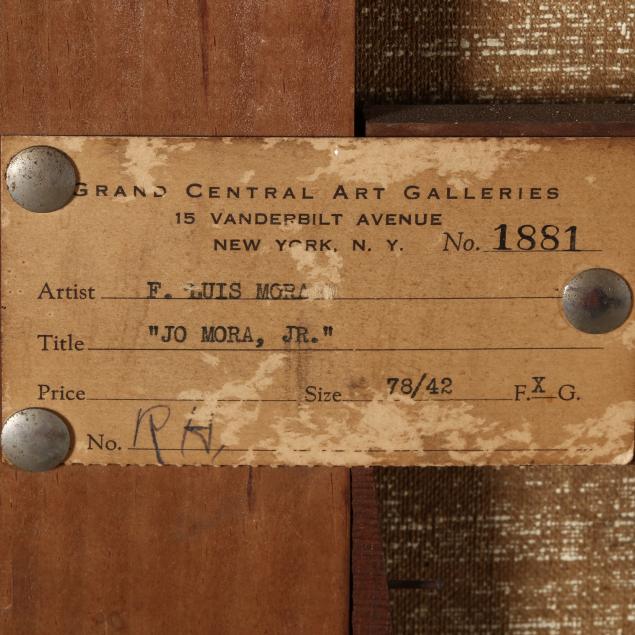 GRAND CENTRAL ART GALLERIES
15 VANDERBILT AVENUE
NEW YORK, N. Y. No. 1881
Artist F. LUIS MORA
Title "JO MORA, JR."
Price Size 78/42 F. X G.
No. R H,